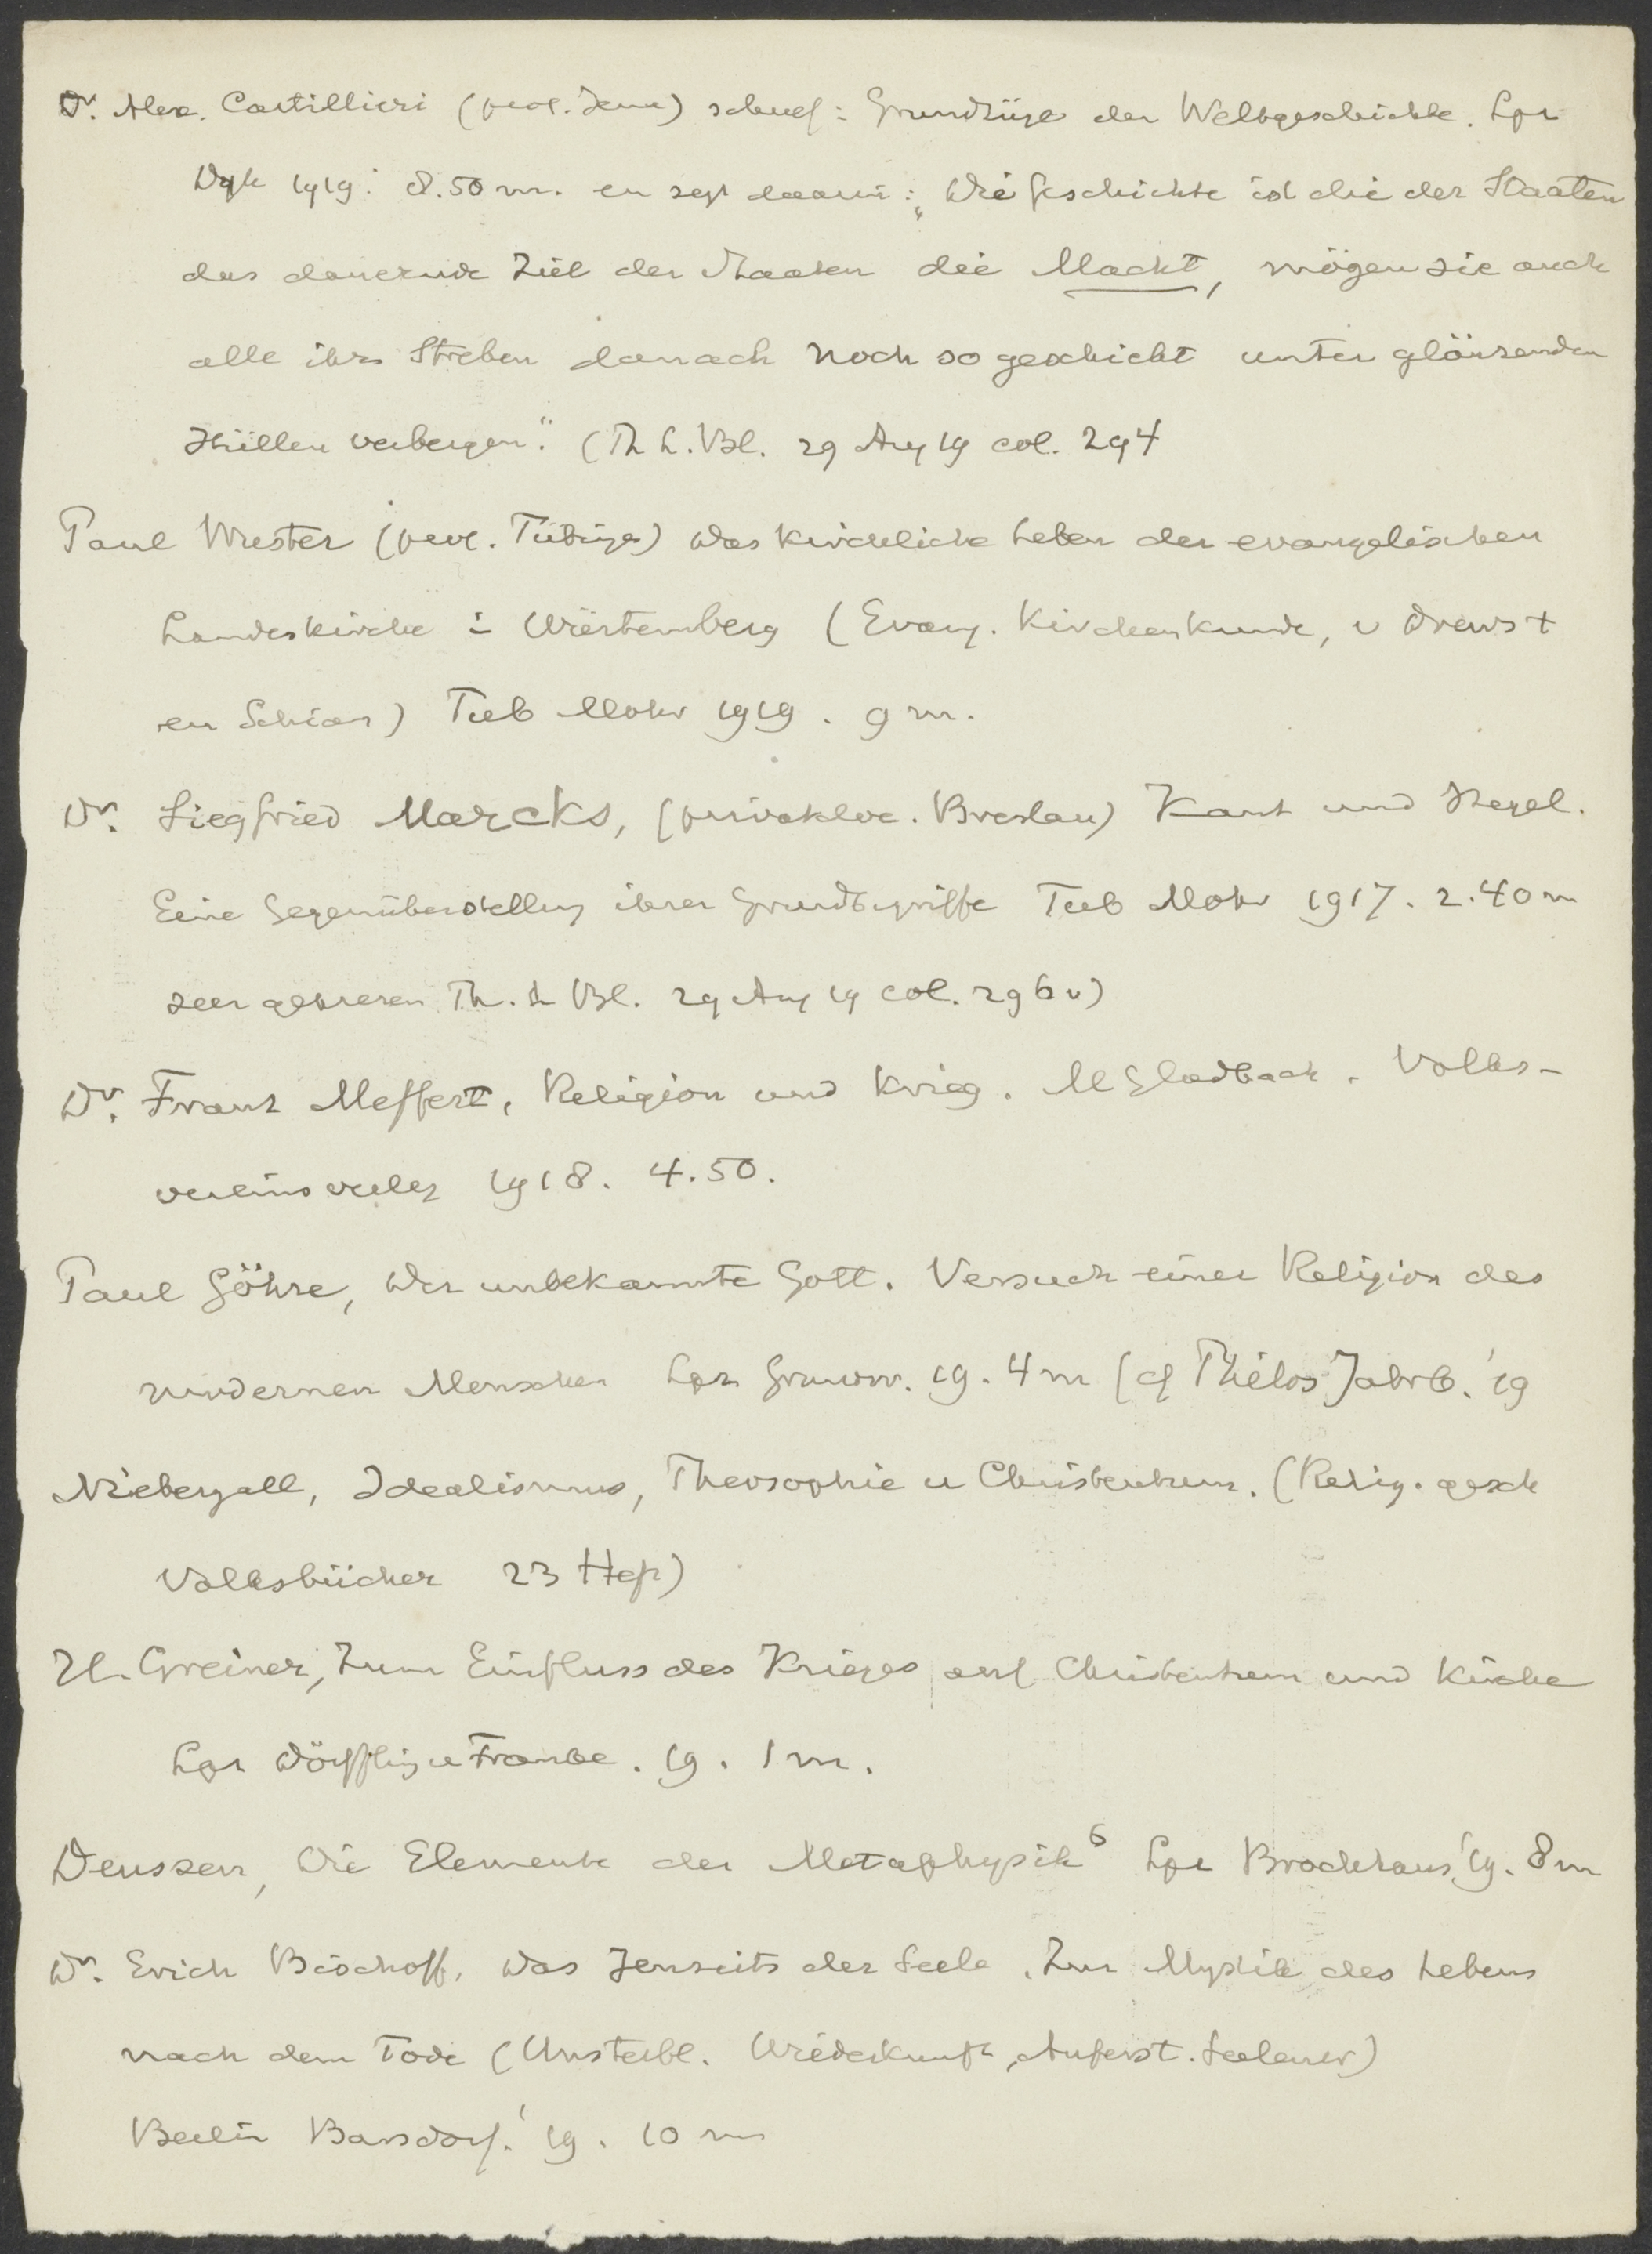 Dr. Alex. Cartillieri (prof. Jena) schreef: Grundzüge der Weltgeschichte. Lpz
Dyk 1919. 8.50 m. en zegt daarin: „Die Geschichte ist die der Staaten
das dauernde Ziel der Staaten die Macht, mögen sie auch
alle ihr Streben danach noch so geschickt unter glänzenden
Hüllen verbergen." (Th. L. Bl. 29 Aug 19 col. 294
Paul Wurster (prof. Tübinge) Das kirchliche Leben der evangelischen
Landeskirche in Würtemberg (Evang. Kirchenkunde, v Drews †
en Schian) Tub Mohr 1919. 9 m.
Dr. Siegfried Marcks, (privatdoc. Breslau) Kant und Hegel.
Eine Gegenüberstellung ihrer Grundbegriffe Tub Mohr 1917. 2.40 m
zeer geprezen Th. L. Bl. 29 Aug 19 col. 296 v)
Dr. Franz Meffert, Religion und Krieg. M Gladbach. Volks-
vereinsverlag 1918. 4.50.
Paul Göhre, Der unbekannte Gott. Versuch einer Religion des
modernen Menschen Lpz Grunow. 19. 4 m (cf Philos Jahrb. '19
Niebergall, Idealismus, Theosophie u Christentum. (Relig. gesch
Volksbücher 23 Heft)
H. Greiner, Zum Einfluss des Krieges auf Christentum und Kirche
Lpz Dörffling u Franke. 19. 1 m.
Deussen, Die Elemente der Metaphysik⁶ Lpz Brockhaus '19. 8 m
Dr. Erich Bischoff, Das Jenseits der Seele. Zur Mystik des Lebens
nach dem Tode (Unsterbl. Wiederkunft, Auferst. Seelenw)
Berlin Barsdorf. '19. 10 m